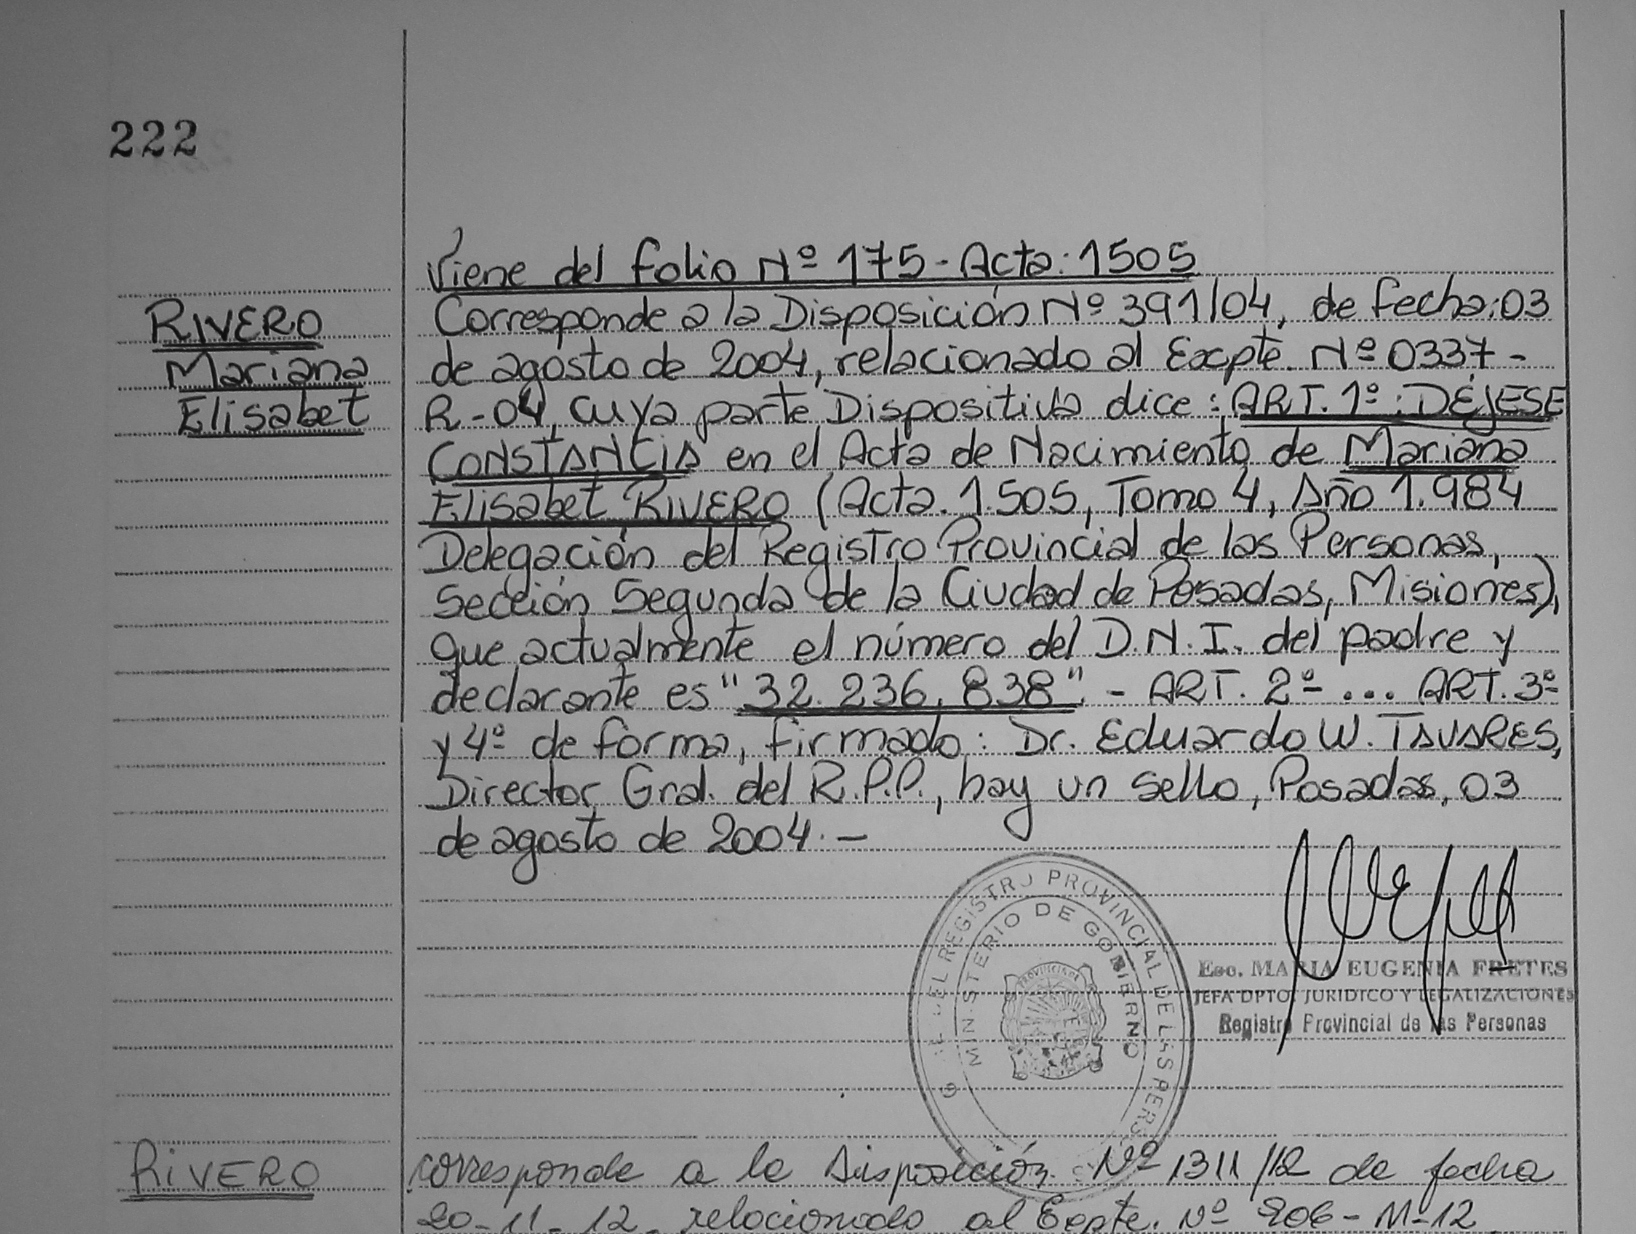 222
Viene del folio Nº 175 - Acta: 1505
RIVERO
Mariana
Elisabet
Corresponde a la Disposición Nº 391/04, de fecha: 03
de agosto de 2004, relacionado al Excpte. Nº 0337 -
R - 04, cuya parte Dispositiva dice: ART. 1º: DÉJESE
CONSTANCIA en el Acta de Nacimiento de Mariana
Elisabet RIVERO (Acta. 1.505, Tomo 4, Año 1.984
Delegación del Registro Provincial de las Personas,
Sección Segunda de la Ciudad de Posadas, Misiones),
que actualmente el número del D.N.I. del padre y
declarante es "32.236.838". - ART. 2º - ... ART. 3º
y 4º de forma, firmado: Dr. Eduardo W. TAVARES,
Director Gral. del R.P.P., hay un sello, Posadas, 03
de agosto de 2004. -
EL REGISTRO PROVINCIAL DE LAS PERS
MINISTERIO DE GOBIERNO
Esc. MARIA EUGENIA FRETES
JEFA DPTO. JURIDICO Y LEGALIZACIONES
Registro Provincial de las Personas
RIVERO
corresponde a la Disposición Nº 1311/12 de fecha
20-11-12 relacionado al Expte. Nº 206-M-12